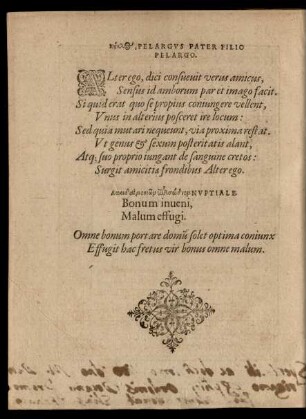 PELARGVS PATER FILIO
PELARGO.
ALter ego, dici consueuit verus amicus,
Sensus id amborum par et imago facit.
Si quid erat quo se propius coniungere vellent,
Vnus in alterius posceret ire locum:
Sed quia mutari nequeunt, via proxima restat.
Vt genus & sexum posteritatis alant,
Atq; suo proprio iungant de sanguine cretos:
Surgit amicitia frondibus Alter ego.
NVPTIALE.
Bonum inueni,
Malum effugi.
Omne bonum portare domū solet optima coniunx
Effugit hac fretus vir bonus omne malum.